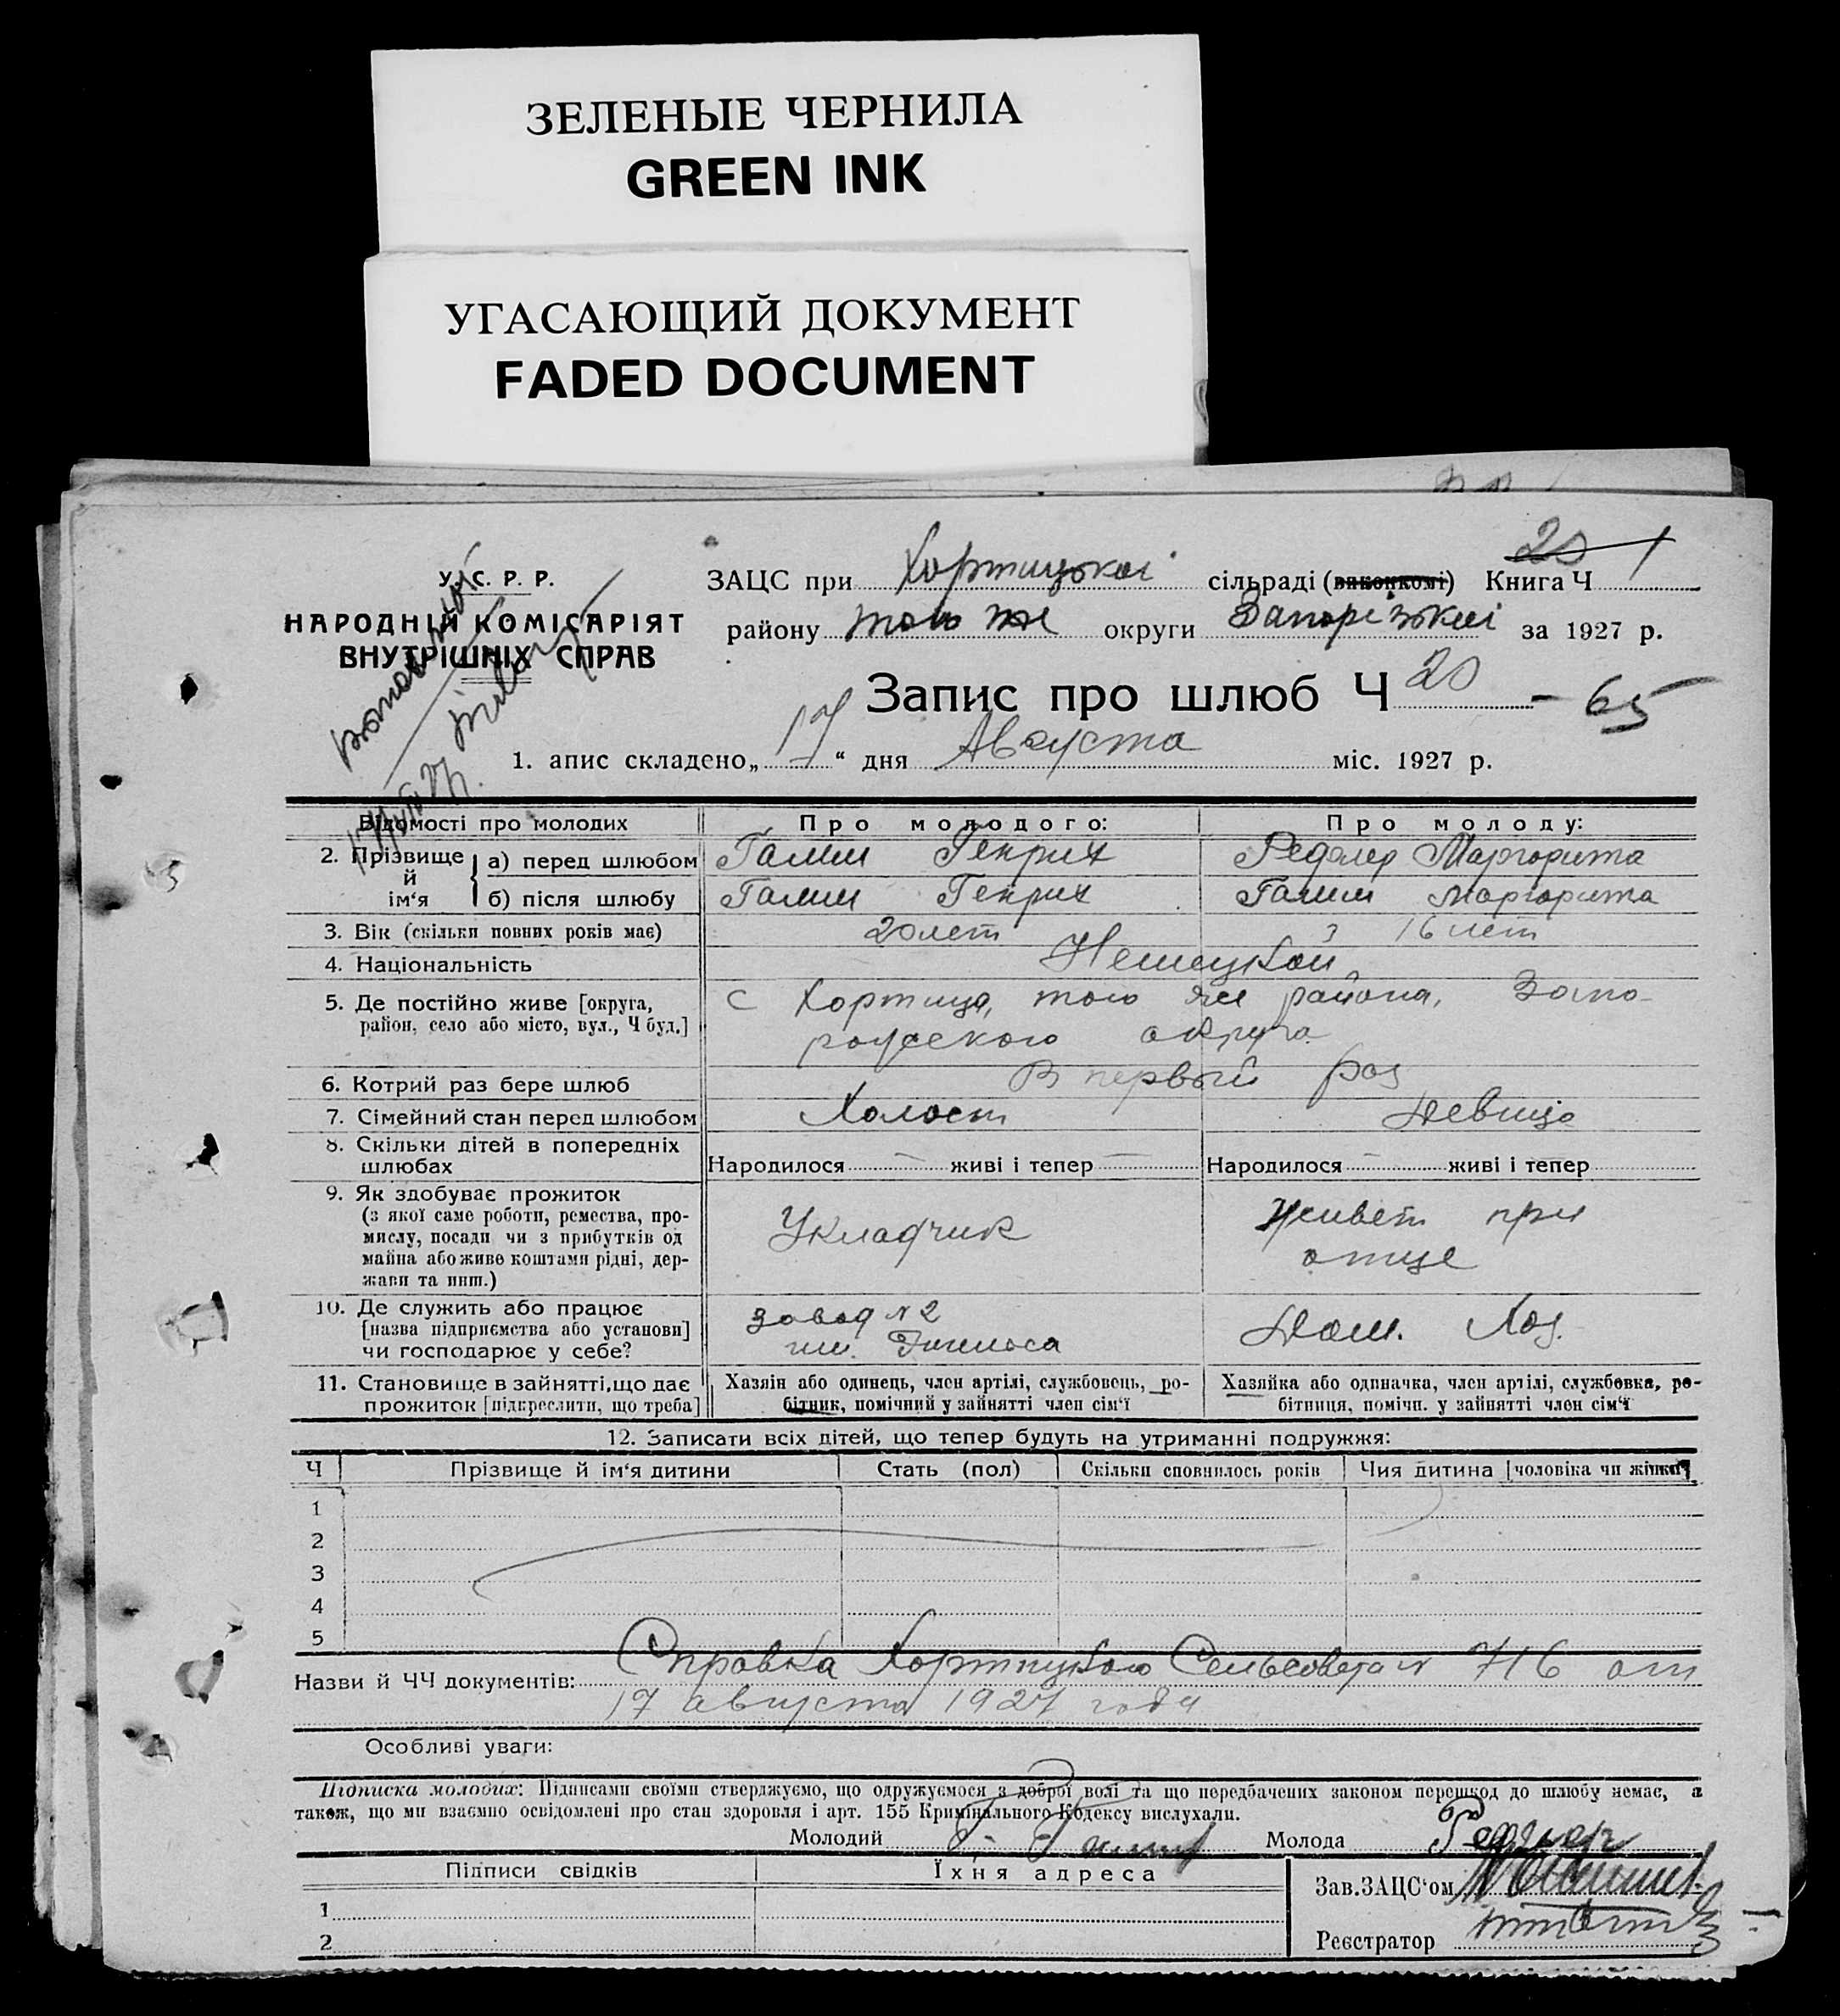 ЗЕЛЕНЫЕ ЧЕРНИЛА
GREEN INK
УГАСАЮЩИЙ ДОКУМЕНТ
FADED DOCUMENT
У. С. Р. Р.
НАРОДНІЙ КОМІСАРІЯТ
ВНУТРІШНІХ СПРАВ
ЗАЦС при Хортицької сільраді (виконкомі) Книга Ч 20 1
району того же округи Запорізької за 1927 р.
Запис про шлюб Ч 20 - 65
1. апис складено „17“ дня Августа міс. 1927 р.
Відомості про молодих Про молодого: Про молоду:
2. Прізвище й ім‘я а) перед шлюбом Гамм Генрих Маргарита
б) після шлюбу Гамм Генрих Гамм Маргарита
3. Вік (скільки повних років має) 20 лет 16 лет
4. Національність Немецкой
5. Де постійно живе [округа, район, село або місто, вул., Ч буд.] с Хортица, того же района, Запо-
рожского округа
6. Котрий раз бере шлюб В первый раз
7. Сімейний стан перед шлюбом Холост Девица
8. Скільки дітей в попередніх шлюбах Народилося — живі і тепер — Народилося — живі і тепер
9. Як здобуває прожиток Укладчик Живет при
(з якої саме роботи, ремества, про- отце
мислу, посади чи з прибутків од
майна або живе коштами рідні, дер-
жави та инш.)
10. Де служить або працює завод № 2 Дом. Хоз.
[назва підприємства або установи] им.
чи господарює у себе?
11. Становище в зайнятті, що дає Хазяін або одинець, член артілі, службовець, ро- Хазяйка або одиначка, член артілі, службовка, ро-
прожиток [підкреслити, що треба] бітник, помічний у зайнятті член сім‘ї бітниця, помічн. у зайнятті член сім‘ї
12. Записати всіх дітей, що тепер будуть на утриманні подружжя:
Ч Прізвище й ім‘я дитини Стать (пол) Скільки сповнилось років Чия дитина [чоловіка чи жінки]
1
2
3
4
5
Назви й ЧЧ документів: Справка Хортицкого Сельсовета № 716 от
17 августа 1927 года
Особливі уваги:
Підписка молодих: Підписами своїми стверджуємо, що одружуємося з доброї волі та що передбачених законом перешкод до шлюбу немає, а
також, що ми взаємно освідомлені про стан здоровля і арт. 155 Кримінального Кодексу вислухали.
Молодий Молода
Підписи свідків Їхня адреса
Зав. ЗАЦС‘ом
1
2
Реєстратор